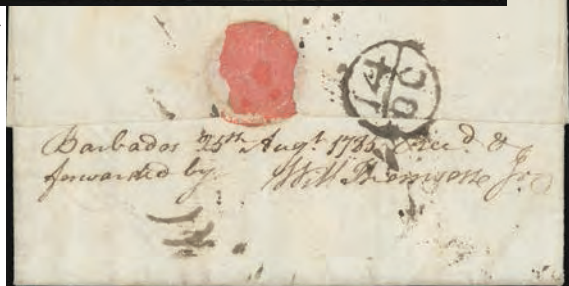 14
OC
Barbados 25th Augt 1785 Recd &
forwarded by Will Thomson Jr